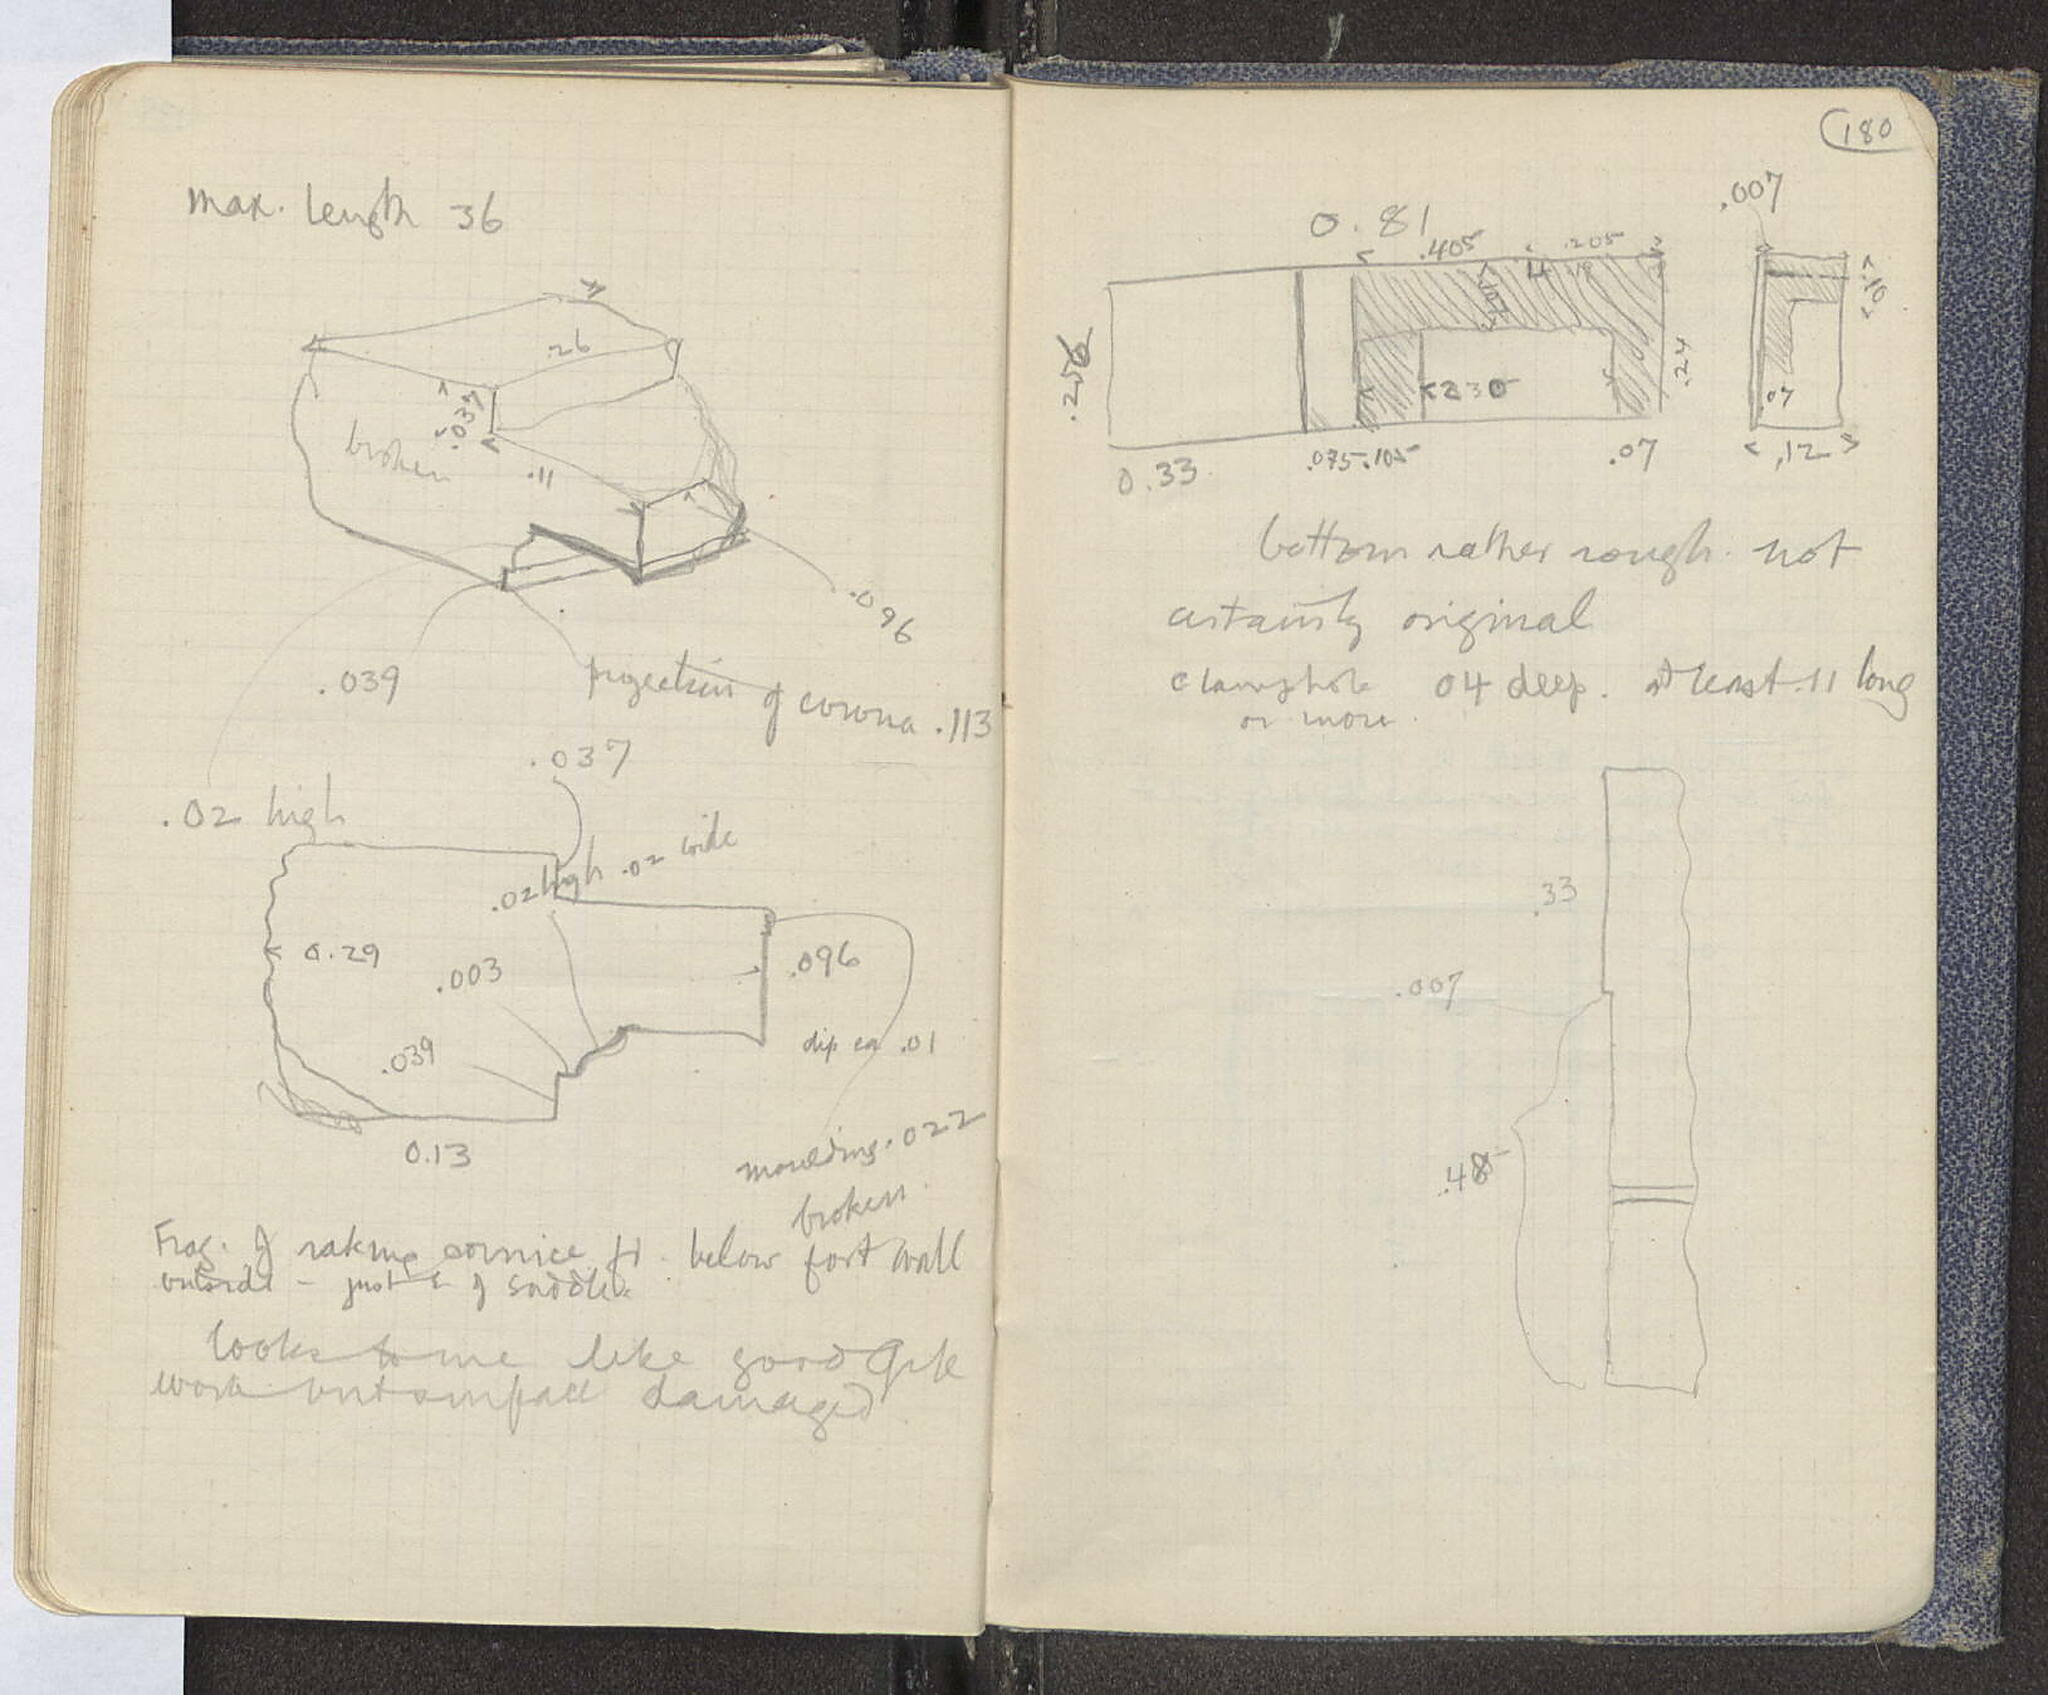 max. length 36
.26
.037
broken
.11
.096
.039
projection of corona .113
.037
.02 high
.02 high .02 wide
0.29
.003
.096
.039
dip ca .01
0.13
moulding .022
broken
Frag. of raking cornice fd. below fort wall
outside - just E of saddle
looks to me like good Grk
work but surface damaged
180
.007
0.81
.405
.205
.10
.256
.230
.24
.07
0.33
.075
.105
.07
.12
bottom rather rough. not
certainly original
clamphole 04 deep. at least .11 long
or more.
.33
.007
.485